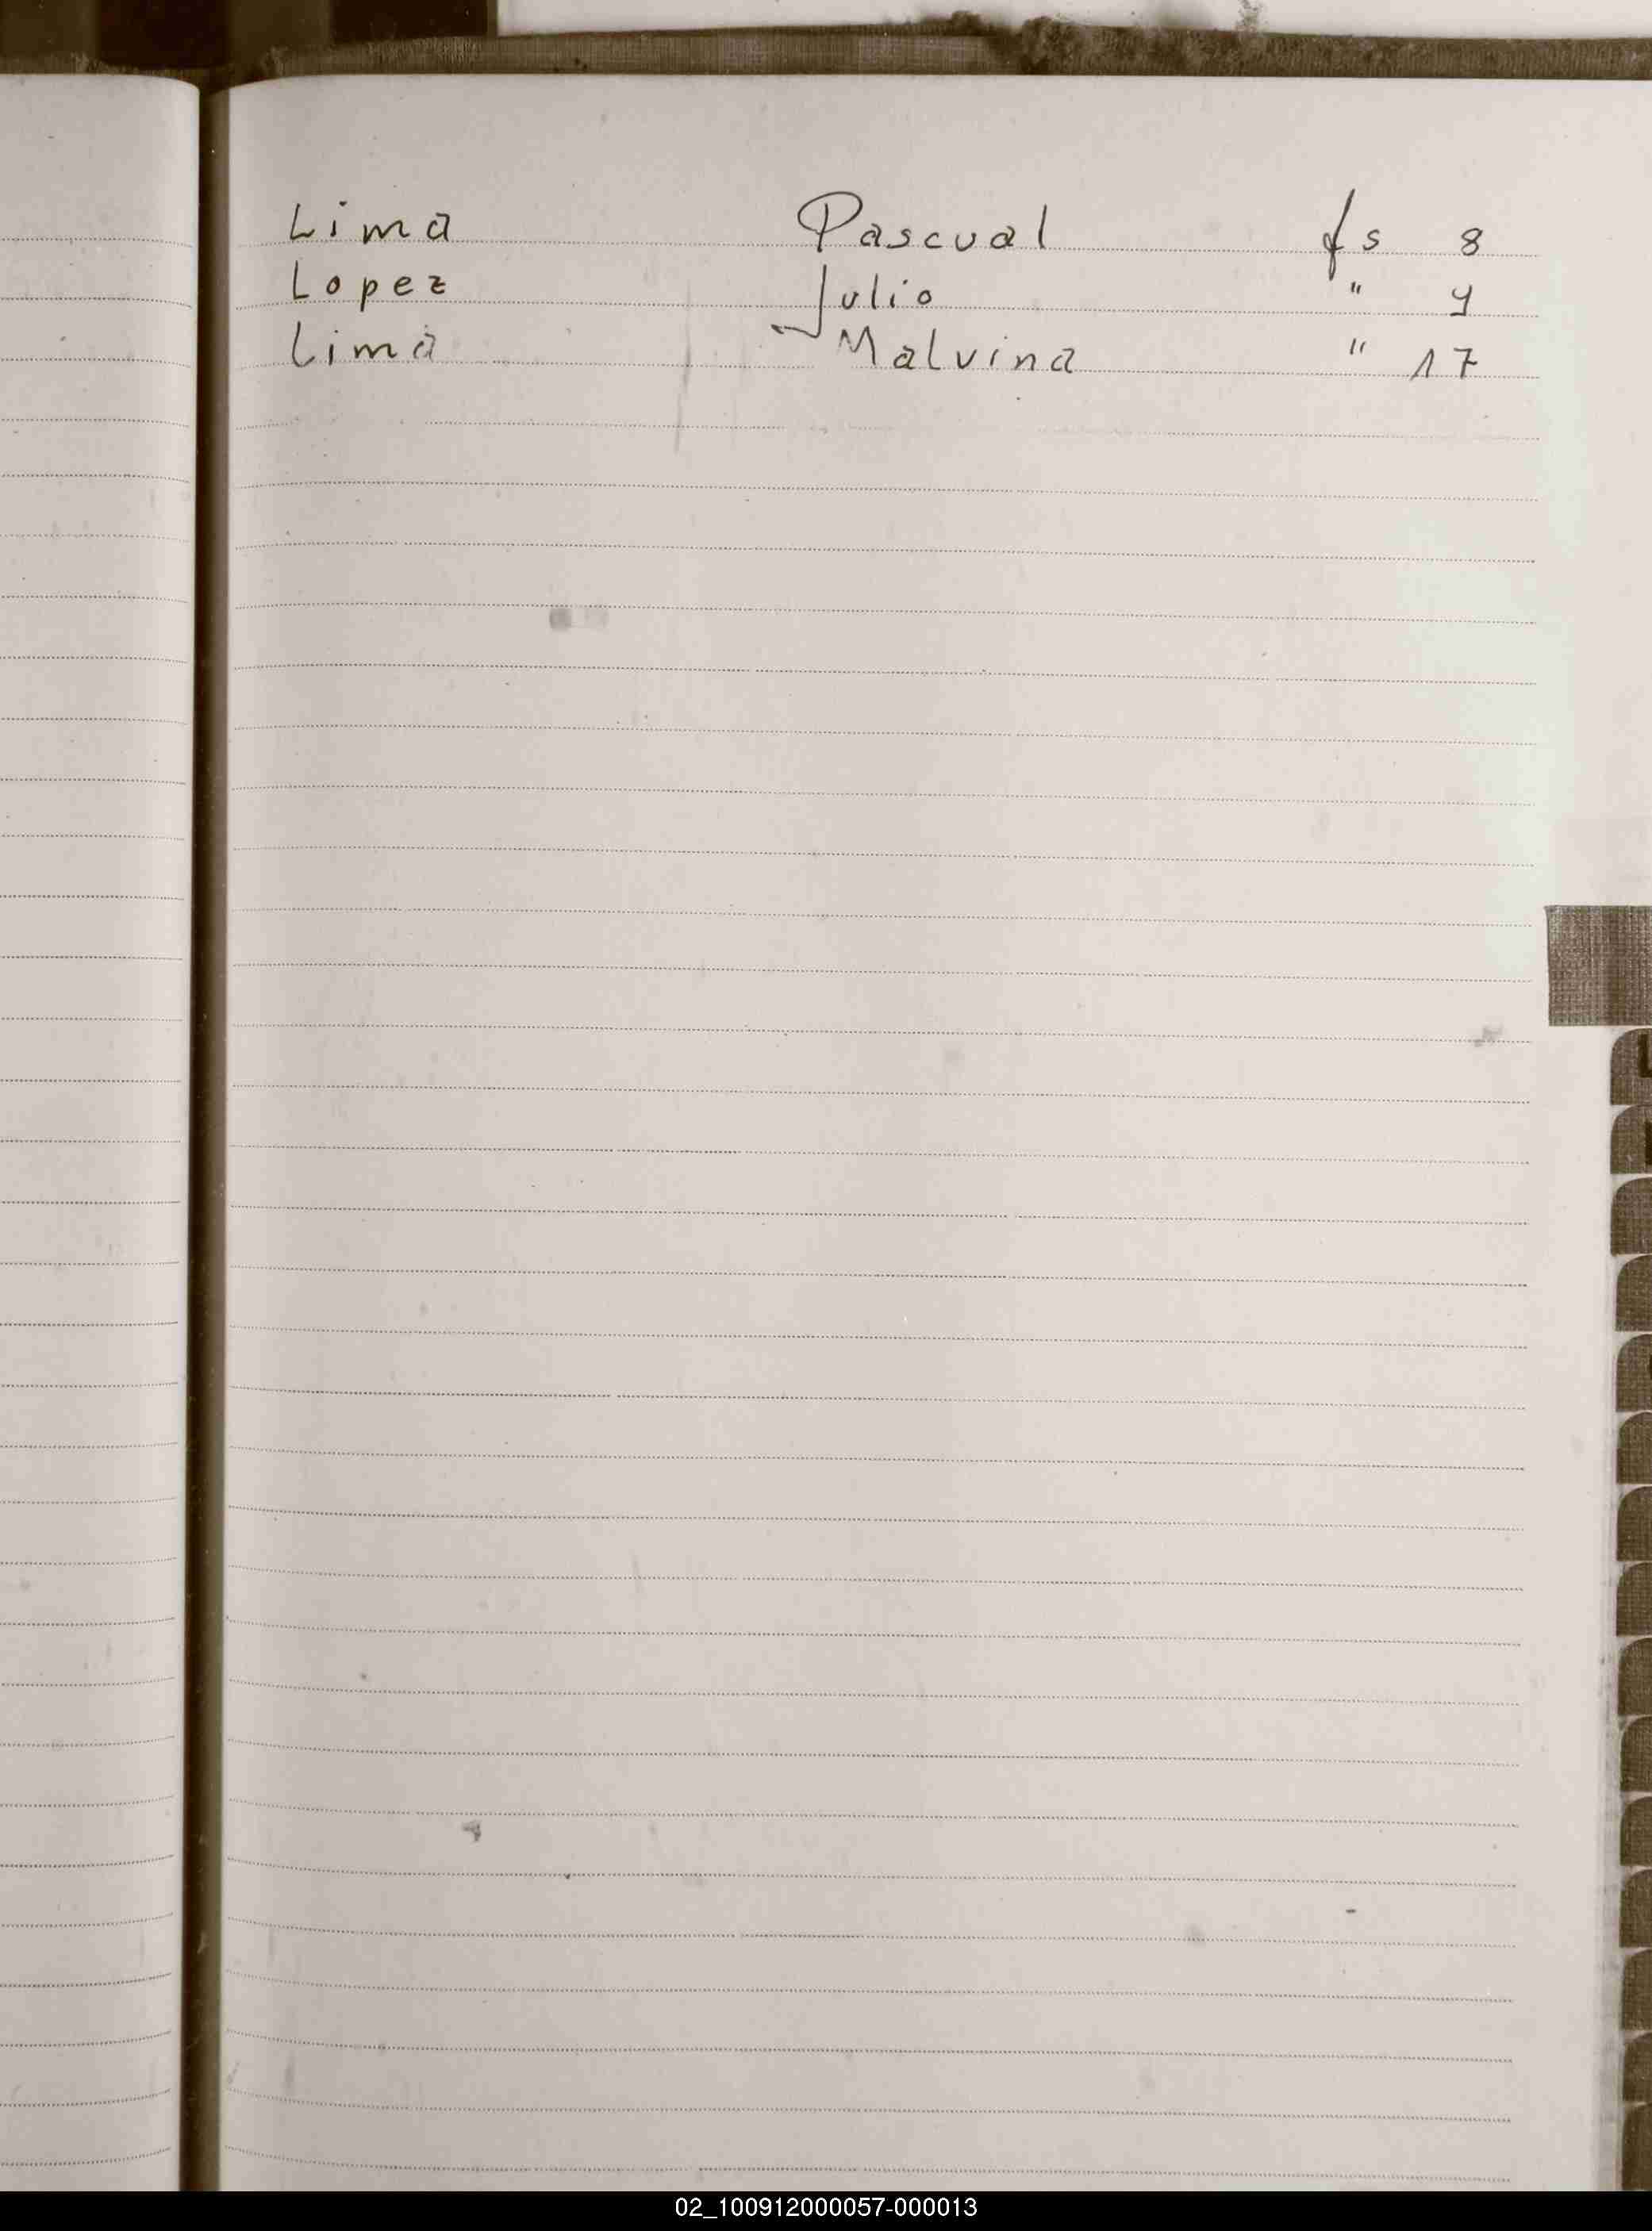 Lima Pascual fs 8
Lopez Julio " 9
Lima Malvina " 17
02_100912000057-000013